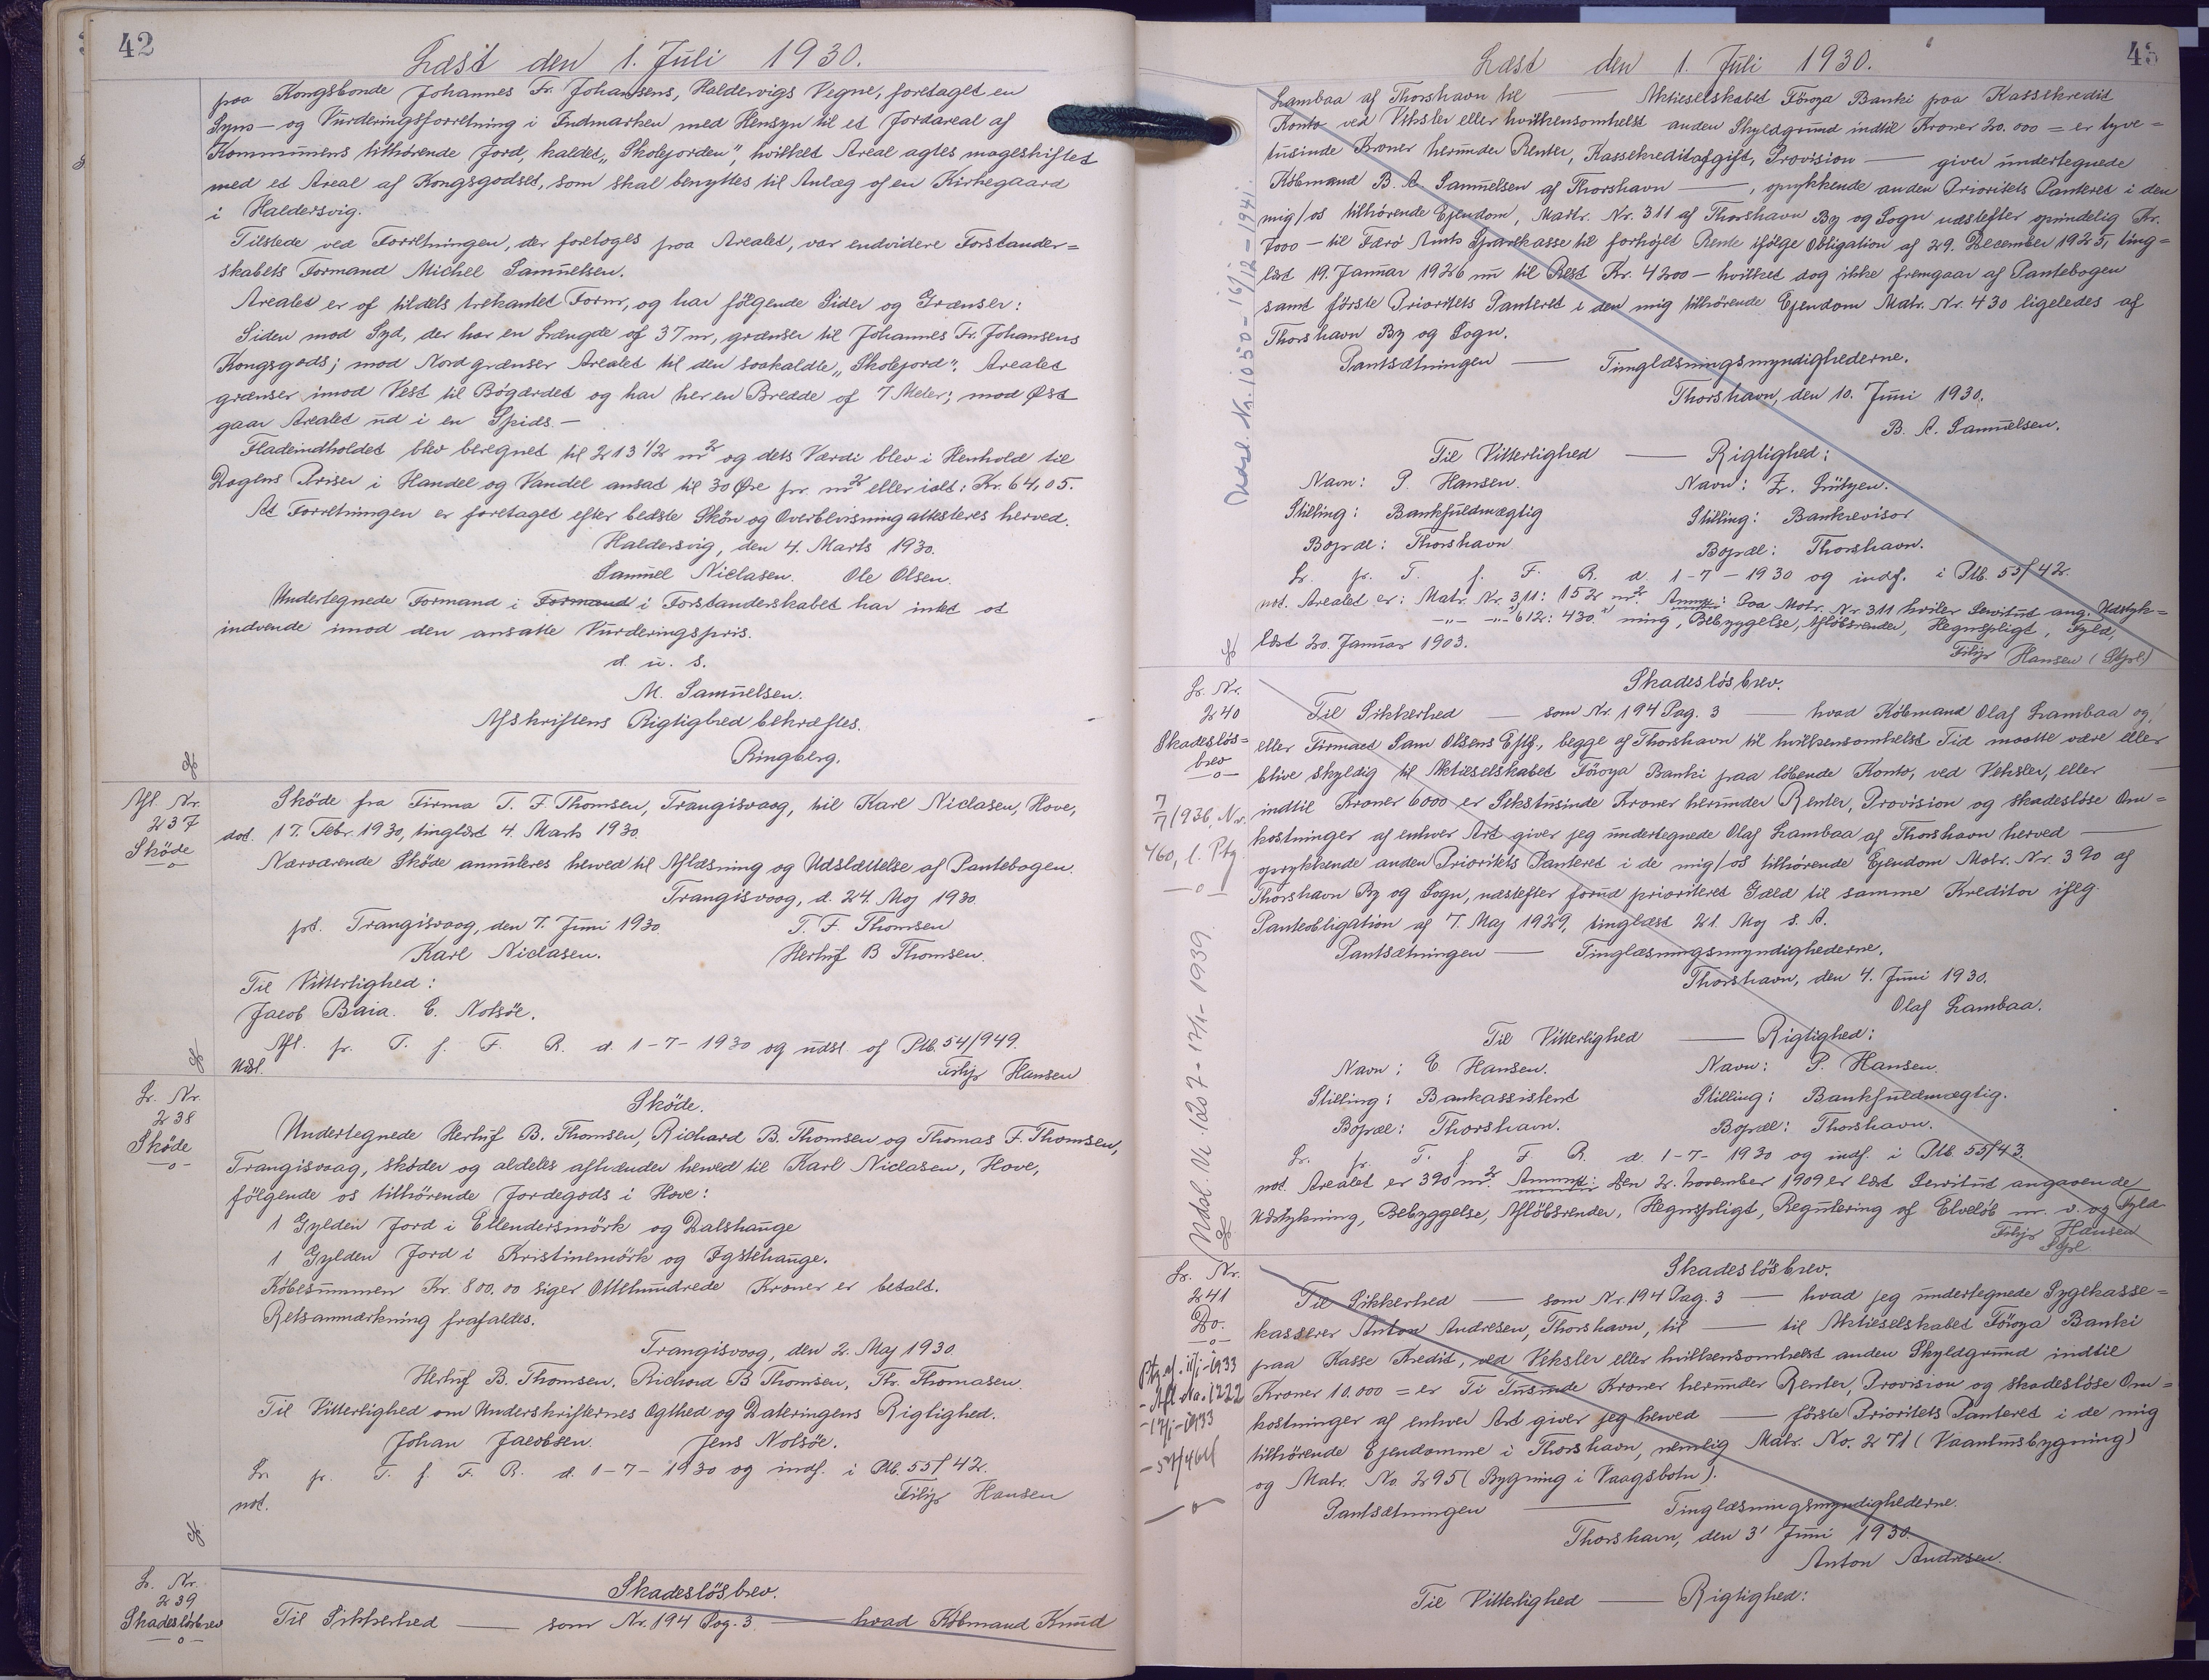 42
Læst den 1. Juli 1930.
paa Kongsbonde Johannes Fr. Johansens, Haldersvigs Vegne, foretaget en
Syns- og Vurderingsforretning i Indmarken med Hensyn til et Jordareal af
Kommunens tilhörende Jord, kaldet „Skolejorden", hvilket Areal agtes mageskiftet
med et Areal af Kongsgodset, som skal benyttes til Anlæg af en Kirkegaard
i Haldersvig.
Tilstede ved Forretningen, der foretoges paa Arealet, var endvidere Forstander=
skabets Formand Michel Samuelsen.
Arealet er af tildels trekantet Form, og har fölgende Sider og Grænser:
Siden mod Syd, der har en Længde af 37 m, grænser til Johannes Fr. Johansens
Kongsgods; mod Nord grænser Arealet til den saakaldte „Skolejord". Arealet
grænser imod Vest til Bögærdet og har her en Bredde af 7 Meter; mod Øst
gaar Arealet ud i en Spids.-
Fladeindholdet blev beregnet til 213 1/2 m² og dets Værdi blev i Henhold til
Dagens Priser i Handel og Vandel ansat til 30 Øre pr. m² eller ialt: Kr. 64,05.
At Forretningen er foretaget efter bedste Skön og Overbevisning attesteres herved.
Haldersvig, den 4. Marts 1930.
Samuel Niclasen. Ole Olsen.
Undertegnede Formand i Formand i Forstanderskabet har intet at
indvende imod den ansatte Vurderingspris.
d. u. s.
M. Samuelsen.
Afskriftens Rigtighed bekræftes.
Ringberg.
Afl. Nr.
237
Sköde
Sköde fra Firma T. F. Thomsen, Trangisvaag, til Karl Niclasen, Hove,
dat. 17. Febr. 1930, tinglæst 4. Marts 1930.
Nærværende Sköde annuleres herved til Aflæsning og Udslættelse af Pantebogen.
Trangisvaag, d. 24. Maj 1930.
pt. Trangisvaag, den 7. Juni 1930. T. F. Thomsen
Karl Niclasen. Herluf B Thomsen.
Til Vitterlighed:
Jacob Baia. E. Nolsöe.
Afl. fr. T. f. F. R. d. 1-7-1930 og udsl. af Ptb. 54/949.
Udsl. Filip Hansen
Lr. Nr.
238
Sköde
Sköde.
Undertegnede Herluf B. Thomsen, Richard B. Thomsen og Thomas F. Thomsen,
Trangisvaag, sköder og aldeles afhænder herved til Karl Niclasen, Hove,
fölgende os tilhörende Jordegods i Hove:
1 Gylden Jord i Ellendersmörk og Dalshauge
1 Gylden Jord i Kristinemörk og Igstehauge.
Köbesummen Kr. 800.00 siger Ottehundrede Kroner er betalt.
Retsanmærkning frafaldes.
Trangisvaag, den 2. Maj 1930.
Herluf B. Thomsen. Richard B Thomsen, Th. Thomasen.
Til Vitterlighed om Underskrifternes Ægthed og Dateringens Rigtighed.
Johan Jacobsen. Jens Nolsöe.
Lr. fr. T. f. F. R. d. 1-7-1930 og indf. i Ptb. 55/42.
not. Filip Hansen
Lr. Nr.
239
Skadeslösbrev
Skadeslösbrev.
Til Sikkerhed — som Nr. 194 Pag. 3 — hvad Köbmand Knud
43
Læst den 1. Juli 1930.
Lambaa af Thorshavn til — Aktieselskabet Föroya Banki paa Kassekredit
Konto ved Veksler eller hvilkensomhelst anden Skyldgrund indtil Kroner 20.000 = er tyve=
tusinde Kroner herunder Renter, Kassekreditafgift, Provision — giver undertegnede
Köbmand B. A. Samuelsen af Thorshavn —, oprykkende anden Prioritets Panteret i den
mig/os tilhörende Ejendom, Matr. Nr. 311 af Thorshavn By og Sogn næstefter oprindelig Kr.
7000 - til Færö Amts Sparekasse til forhöjet Rente ifölge Obligation af 29. December 1925, ting=
læst 19. Januar 1926 nu til Rest Kr. 4200 - hvilket dog ikke fremgaar af Pantebogen
samt förste Prioritets Panteret i den mig tilhörende Ejendom Matr. Nr. 430 ligeledes af
Thorshavn By og Sogn.
Pantsætningen — Tinglæsningsmyndighederne.
Thorshavn, den 10. Juni 1930.
B. A. Samuelsen.
Til Vitterlighed — Rigtighed:
Navn: P. Hansen. Navn: Z. Lützen.
Stilling: Bankfuldmægtig Stilling: Bankrevisor
Bopæl: Thorshavn Bopæl: Thorshavn.
Lr. fr. T. f. F. R. d. 1-7-1930 og indf. i Ptb. 55/42.
not. Arealet er: Matr. Nr. 311: 152 m². Anmrk: Paa Matr. Nr 311 hviler Servitut ang. Udstyk=
-"- -"- 612: 430 " ning, Bebyggelse, Aflöbsrender, Hegnspligt, Fyld,
læst 20. Januar 1903.
Filip Hansen (Stpl.)
Lr. Nr.
240
Skadeslös=
brev
7/7 1936, Nr.
460, l. Ptg.
Skadeslösbrev.
Til Sikkerhed — som Nr. 194 Pag. 3 — hvad Köbmand Olaf Lambaa og/
eller Firmaet Sam Olsens Eftf., begge af Thorshavn til hvilkensomhelst Tid maatte være eller
blive skyldig til Aktieselskabet Föroya Banki paa löbende Konto, ved Veksler, eller —
indtil Kroner 6000 er Sekstusinde Kroner herunder Renter, Provision og skadeslöse Om=
kostninger af enhver Art giver jeg undertegnede Olaf Lambaa af Thorshavn herved —
oprykkende anden Prioritets Panteret i de mig/os tilhörende Ejendom Matr. Nr. 390 af
Thorshavn By og Sogn, næstefter forud prioriteret Gæld til samme Kreditor ifølg.
Panteobligation af 7. Maj 1929, tinglæst 21. Maj s. A.
Pantsætningen — Tinglæsningsmyndighederne.
Thorshavn, den 4. Juni 1930.
Olaf Lambaa.
Til Vitterlighed — Rigtighed:
Navn: E. Hansen. Navn: P. Hansen.
Stilling: Bankassistent Stilling: Bankfuldmægtig.
Bopæl: Thorshavn. Bopæl: Thorshavn.
Lr. fr. T. f. F. R. d. 1-7-1930 og indf. i Ptb. 55/43.
not. Arealet er 390 m². Anmrk: Den 2. November 1909 er læst Servitut angaaende
Udstykning, Bebyggelse, Aflöbsrender, Hegnspligt, Regulering af Elvelöb m. v. og Fyld
Filip Hansen
Stpl.
Lr. Nr.
241
Do.
Skadeslösbrev.
Til Sikkerhed — som Nr. 194 Pag. 3 — hvad jeg undertegnede Sygekasse=
kasserer Anton Andresen, Thorshavn, til — til Aktieselskabet Föroya Banki
paa Kasse Kredit, ved Veksler eller hvilkensomhelst anden Skyldgrund indtil
Kroner 10.000 = er Ti Tusinde Kroner herunder Renter, Provision og skadeslöse Om=
kostninger af enhver Art giver jeg herved — förste Prioritets Panteret i de mig
tilhörende Ejendomme i Thorshavn, nemlig Matr. No. 271 (Vaanhusbygning)
og Matr. No. 295 (Bygning i Vaagsbotn).
Pantsætningen — Tinglæsningsmyndighederne.
Thorshavn, den 3' Juni 1930.
Anton Andresen.
Til Vitterlighed — Rigtighed: